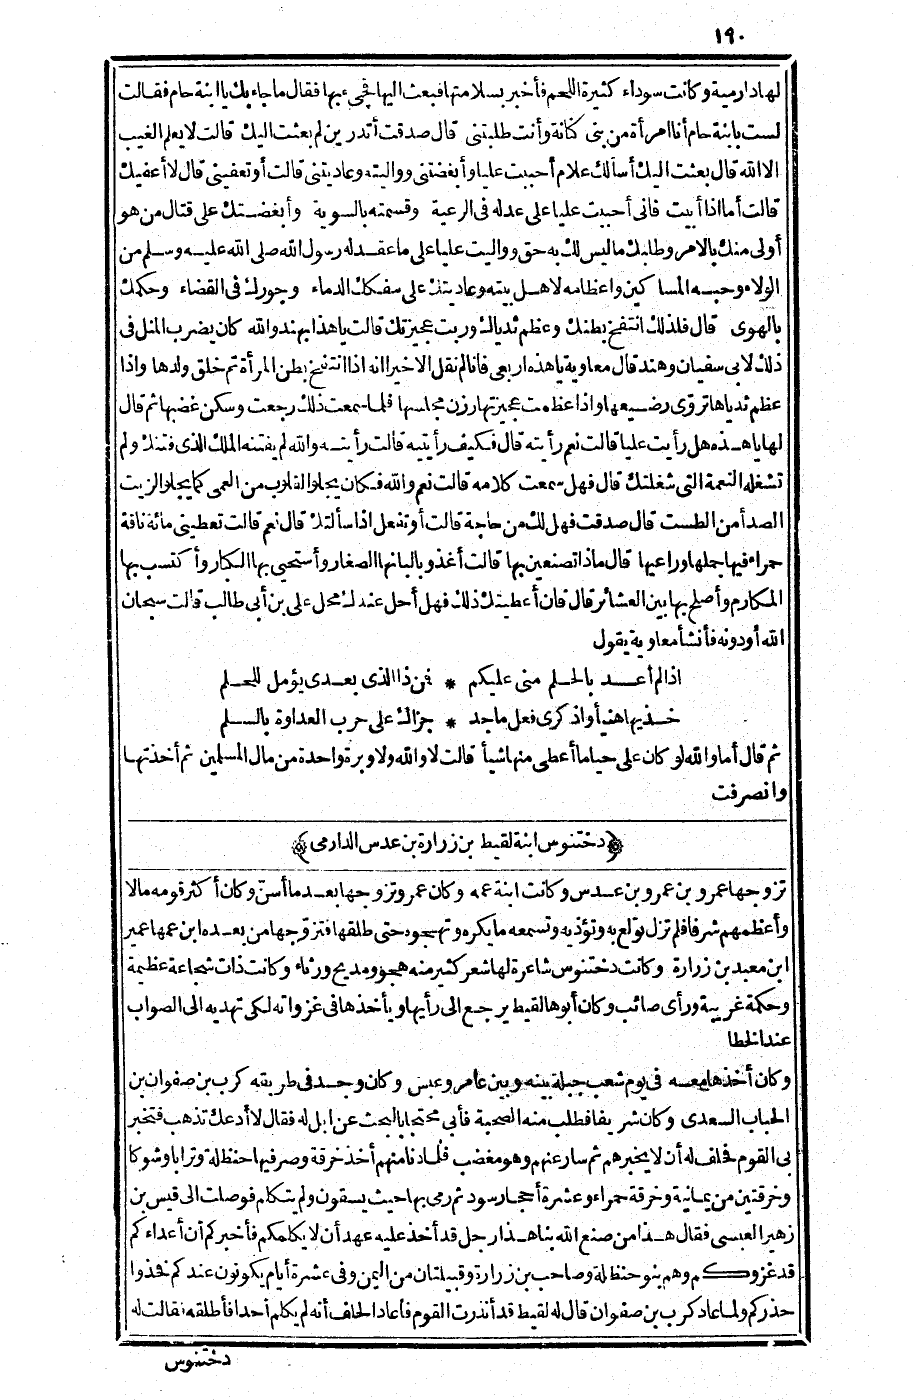 ١٩٠
لها دارمية وكانت سوداء كثيرة اللحم فأخبر بسلامتها فبعث اليها فجىء بها فقال ما جاء بك يا ابنة حام فقالت
لست بابنة حام أنا امرأة من بنى كنانة وأنت طلبتنى قال صدقت أتدرين لم بعثت اليك قالت لا يعلم الغيب
الا الله قال بعثت اليك أسألك علام أحببت عليا وأبغضتنى وواليته وعاديتنى قالت أو تعفينى قال لا أعفيك
قالت أما اذا أبيت فانى أحببت عليا على عدله فى الرعية وقسمته بالسوية وأبغضتك على قتال من هو
أولى منك بالامر وطلبك ما ليس لك به حق وواليت عليا على ما عقد له رسول الله صلى الله عليه وسلم من
الولاء وحبه المساكين واعظامه لاهل بيته وعاديتك على سفكك الدماء وجورك فى القضاء وحكمك
بالهوى قال فلذلك انتفخ بطنك وعظم ثدياك وربت عجيزتك قالت يا هذا بهند والله كان يضرب المثل فى
ذلك لا بى سفيان وهند قال معاوية يا هذه اربعى فانا لم نقل الا خيرا انه اذا انتفخ بطن المرأة تم خلق ولدها واذا
عظم ثدياها تروّى رضيعها واذا عظمت عجيزتها رزن مجلسها فلما سمعت ذلك رجعت وسكن غضبها ثم قال
لها يا هذه هل رأيت عليا قالت نعم رأيته قال فكيف رأيتيه قالت رأيته والله لم يفتنه الملك الذى فتنك ولم
تشغله النعمة التى شغلتك قال فهل سمعت كلامه قالت نعم والله فكان يجلو القلوب من العمى كما يجلو الزيت
الصدأ من الطست قال صدقت فهل لك من حاجة قالت أو تفعل اذا سألتك قال نعم قالت تعطينى مائة ناقة
حمراء فيها جملها وراعيها قال ماذا تصنعين بها قالت أغذو بالبانها الصغار وأستحيى بها الكبار وأكتسب بها
المكارم وأصلح بها بين العشائر قال فان أعطيتك ذلك فهل أحل عندك محل على بن أبى طالب قالت سبحان
الله أو دونه فأنشأ معاوية يقول
اذا لم أعد بالحلم منى عليكم * فمن ذا الذى بعدى يؤمل للحلم
خذيها هنيأ واذكرى فعل ماجد * جزاك على حرب العداوة بالسلم
ثم قال أما والله لو كان على حيا ما أعطى منها شيأ قالت لا والله ولا وبرة واحدة من مال المسلمين ثم أخذتها
وانصرفت
﴿دختنوس ابنة لقيط بن زرارة بن عدس الدارمى﴾
تزوجها عمرو بن عمرو بن عدس وكانت ابنة عمه وكان عمرو تزوجها بعد ما أسنّ وكان أكثر قومه مالا
وأعظمهم شرفا فلم تزل تولع به وتؤذيه وتسمعه ما يكره وتهجوه حتى طلقها فتزوجها من بعده ابن عمها عمير
ابن معبد بن زرارة وكانت دختنوس شاعرة لها شعر كثير منه هجو ومديح ورثاء وكانت ذات شجاعة عظيمة
وحكمة غريبة ورأى صائب وكان أبوها لقيط يرجع الى رأيها ويأخذها فى غزواته لكى تهديه الى الصواب
عند الخطا
وكان أخذها معه فى يوم شعب جبلة بينه وبين عامر وعبس وكان وجد فى طريقه كرب بن صفوان بن
الحباب السعدى وكان شريفا فطلب منه الصحبة فأبى محتجا بالبحث عن ابل له فقال لا أدعك تذهب فتخبر
بى القوم فحلف له أن لا يخبرهم ثم سار عنهم وهو مغضب فلما دنا منهم أخذ خرقة وصر فيها حنظلة وترابا وشوكا
وخرقتين من يمانية وخرقة حمراء وعشرة أحجار سود ثم رمى بها حيث يسقون ولم يتكلم فوصلت الى قيس بن
زهير العبسى فقال هذا من صنع الله بنا هذا رجل قد أخذ عليه عهد أن لا يكلمكم فأخبركم أن أعداءكم
قد غزوكم وهم بنو حنظلة وصاحب بن زرارة وقبيلتان من اليمن وفى عشرة أيام يكونون عندكم فخذوا
حذركم ولما عاد كرب بن صفوان قال له لقيط قد أنذرت القوم فأعاد الحلف أنه لم يكلم أحدا فأطلقه فقالت له
دختنوس